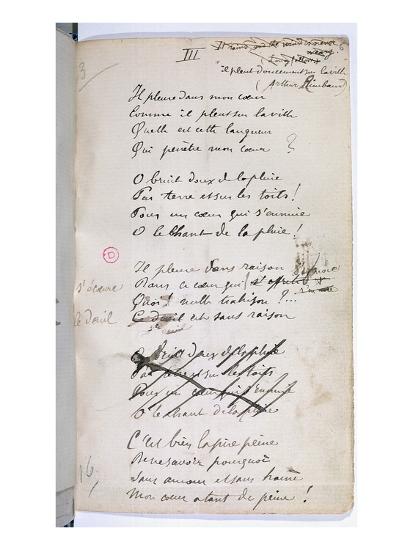 3
III
6
It rains and the wind is never
weary
(Longfellow)
"il pleut doucement sur la ville
(Arthur Rimbaud)
Il pleure dans mon cœur
Comme il pleut sur la ville
Quelle est cette langueur
Qui penètre mon cœur ?
O bruit doux de la pluie
Par terre et sur les toits !
Pour un cœur qui s'ennuie
O le chant de la pluie !
D
Il pleure sans raison
Dans ce cœur qui
s'écœure
Quoi ! nulle trahison ?...
le deuil
Ce deuil est sans raison
O bruit doux de la pluie
Par terre et sur les toits
Pour un cœur qui s'ennuie
O le chant de la pluie
C'est bien la pire peine
De ne savoir pourquoi
Sans amour et sans haine
Mon cœur a tant de peine !
16